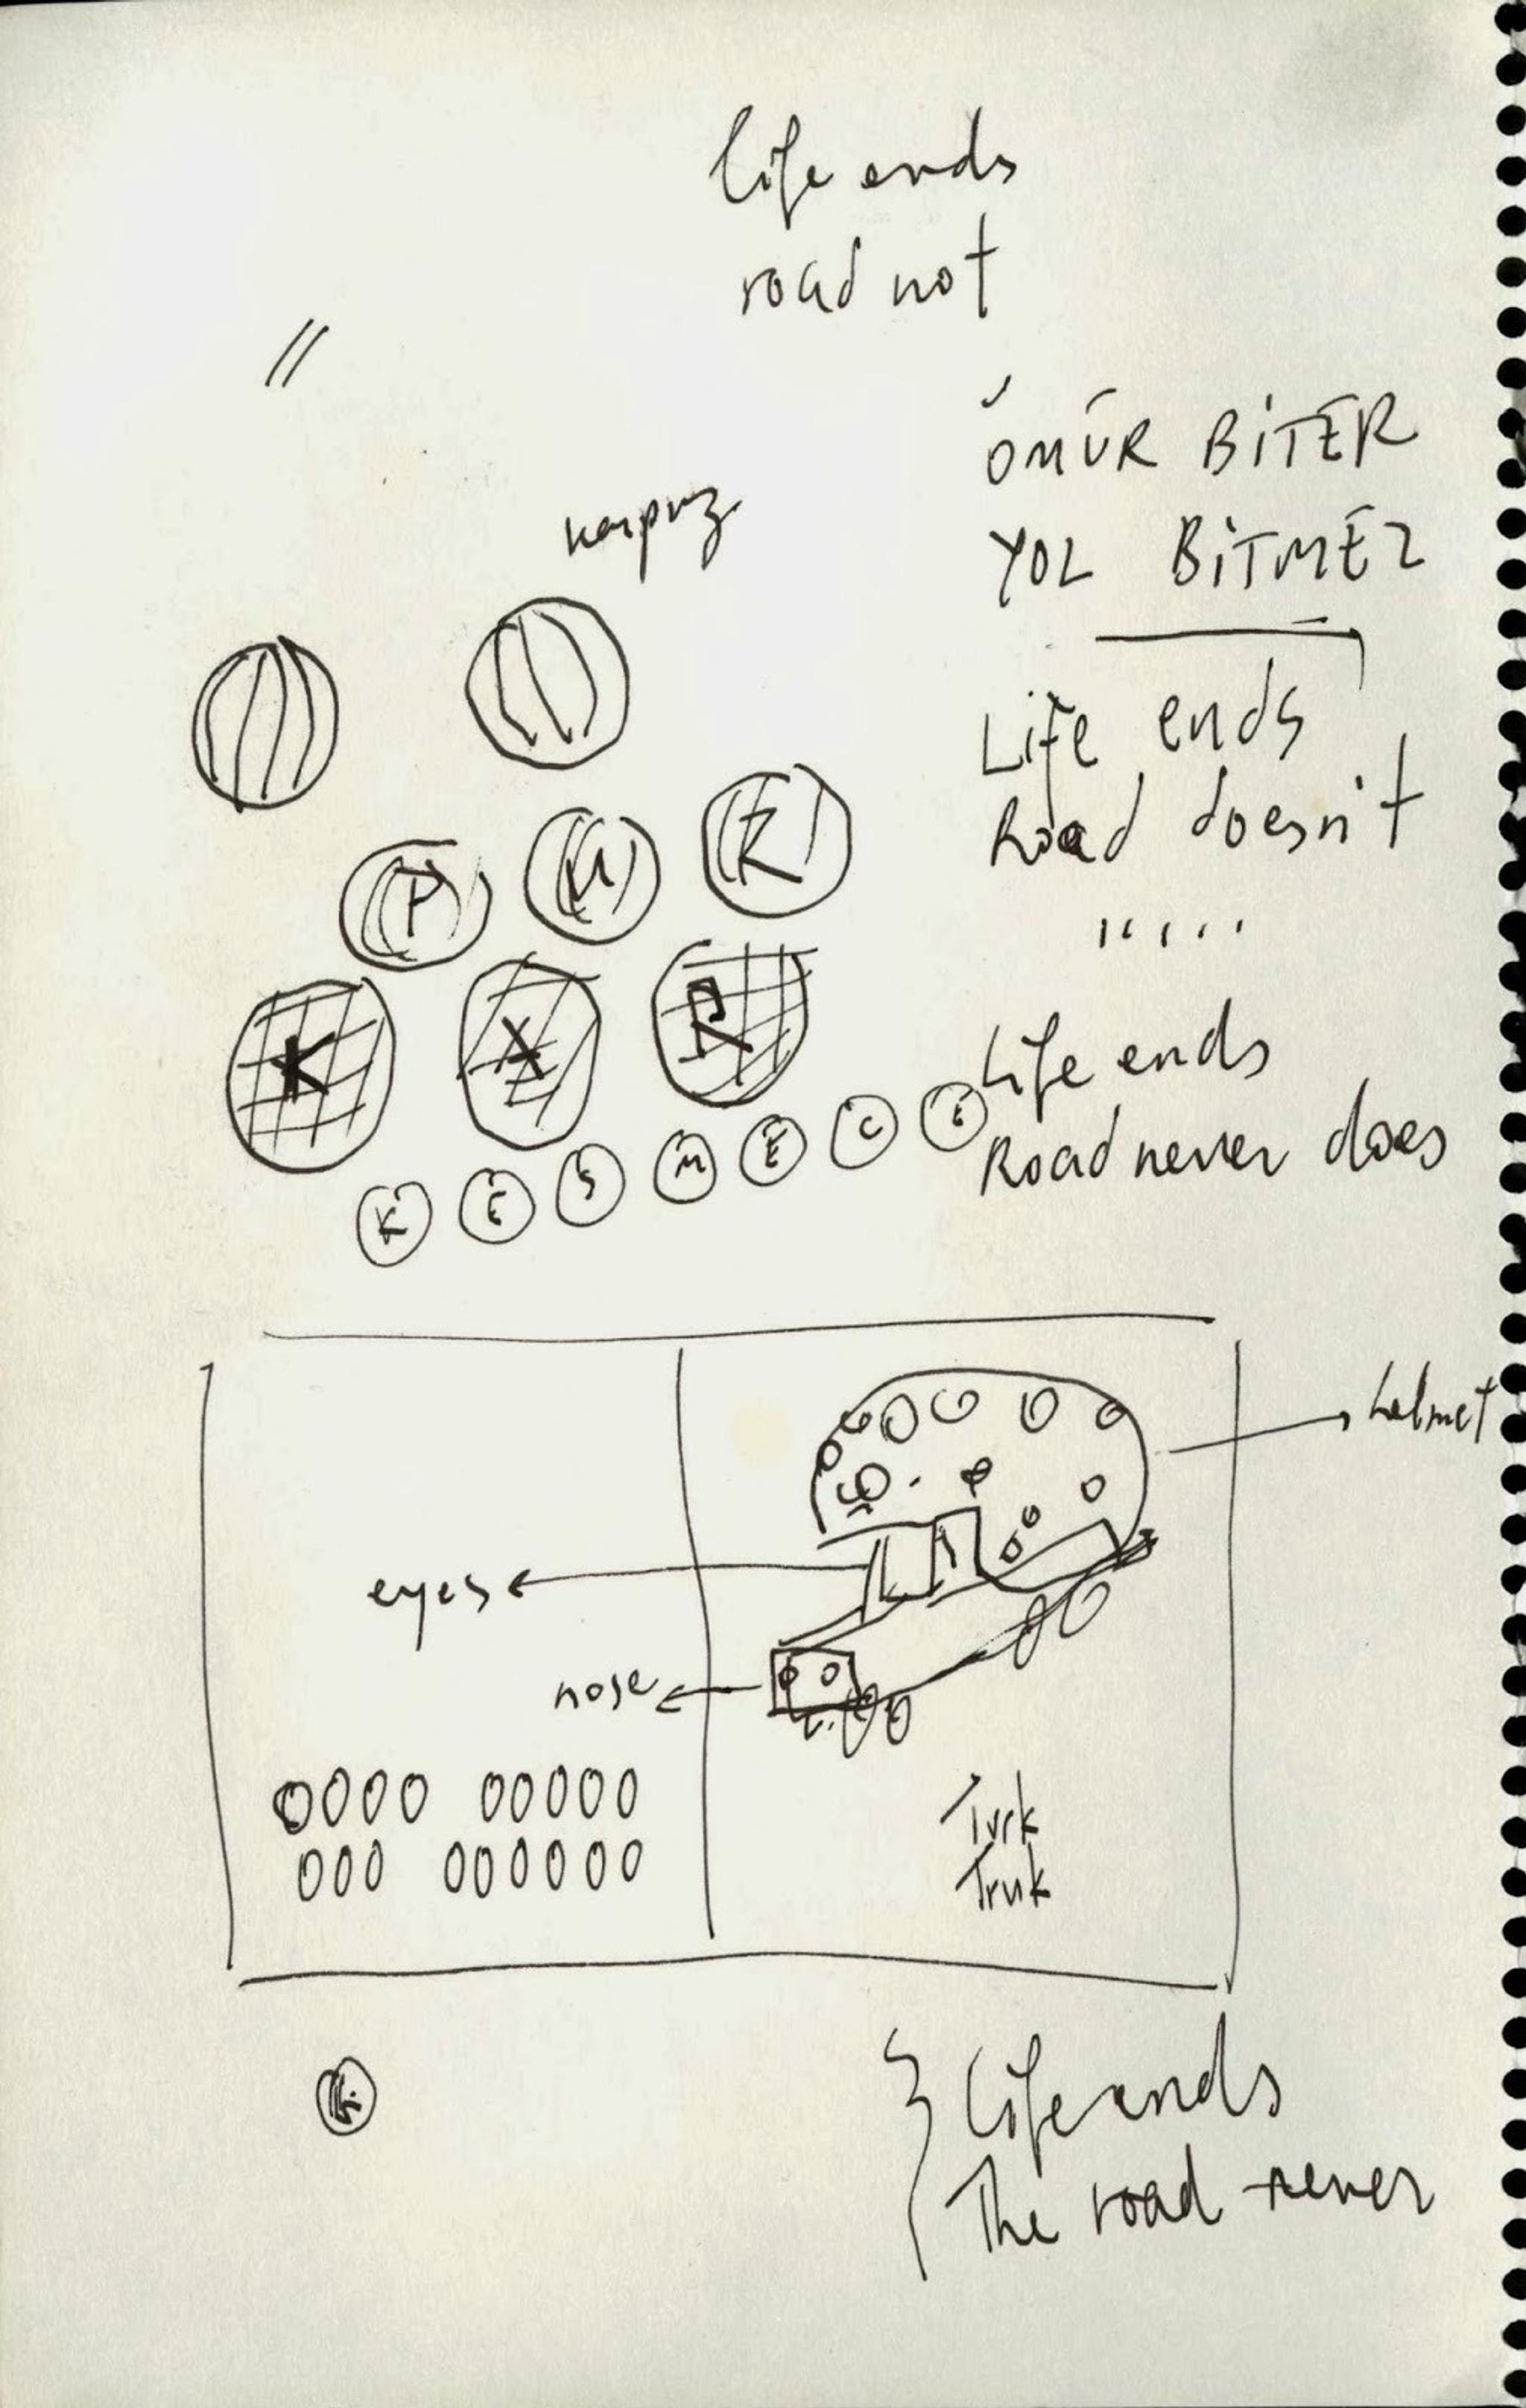 Life ends
road not
ÖMÜR BİTER
YOL BİTMEZ
karpuz
Life ends
Road doesn't
.....
P U Z
K R
Life ends
Road never does
K E S M E C E
helmet
eyes
nose
0000 00000
000 000000
Turk
Truk
K
Life ends
The road never